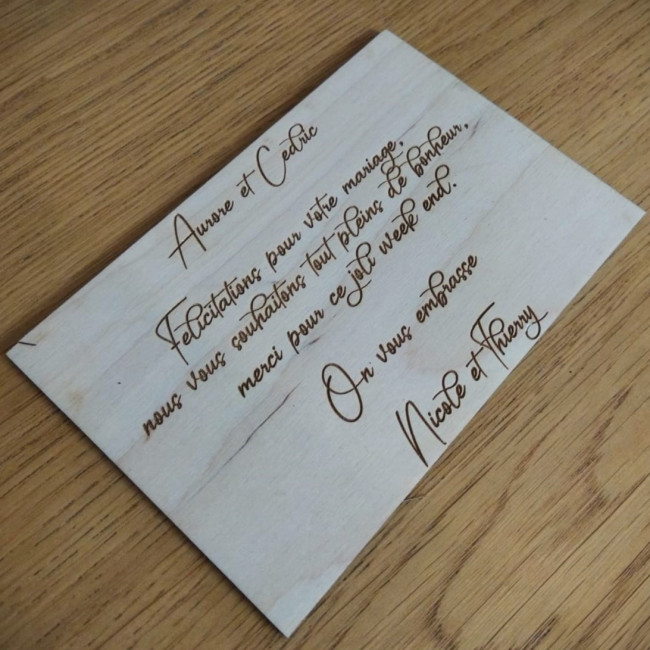 Aurore et Cédric
Felicitations pour votre mariage,
nous vous souhaitons tout pleins de bonheur,
merci pour ce joli week end.
On vous embrasse
Nicole et Thierry